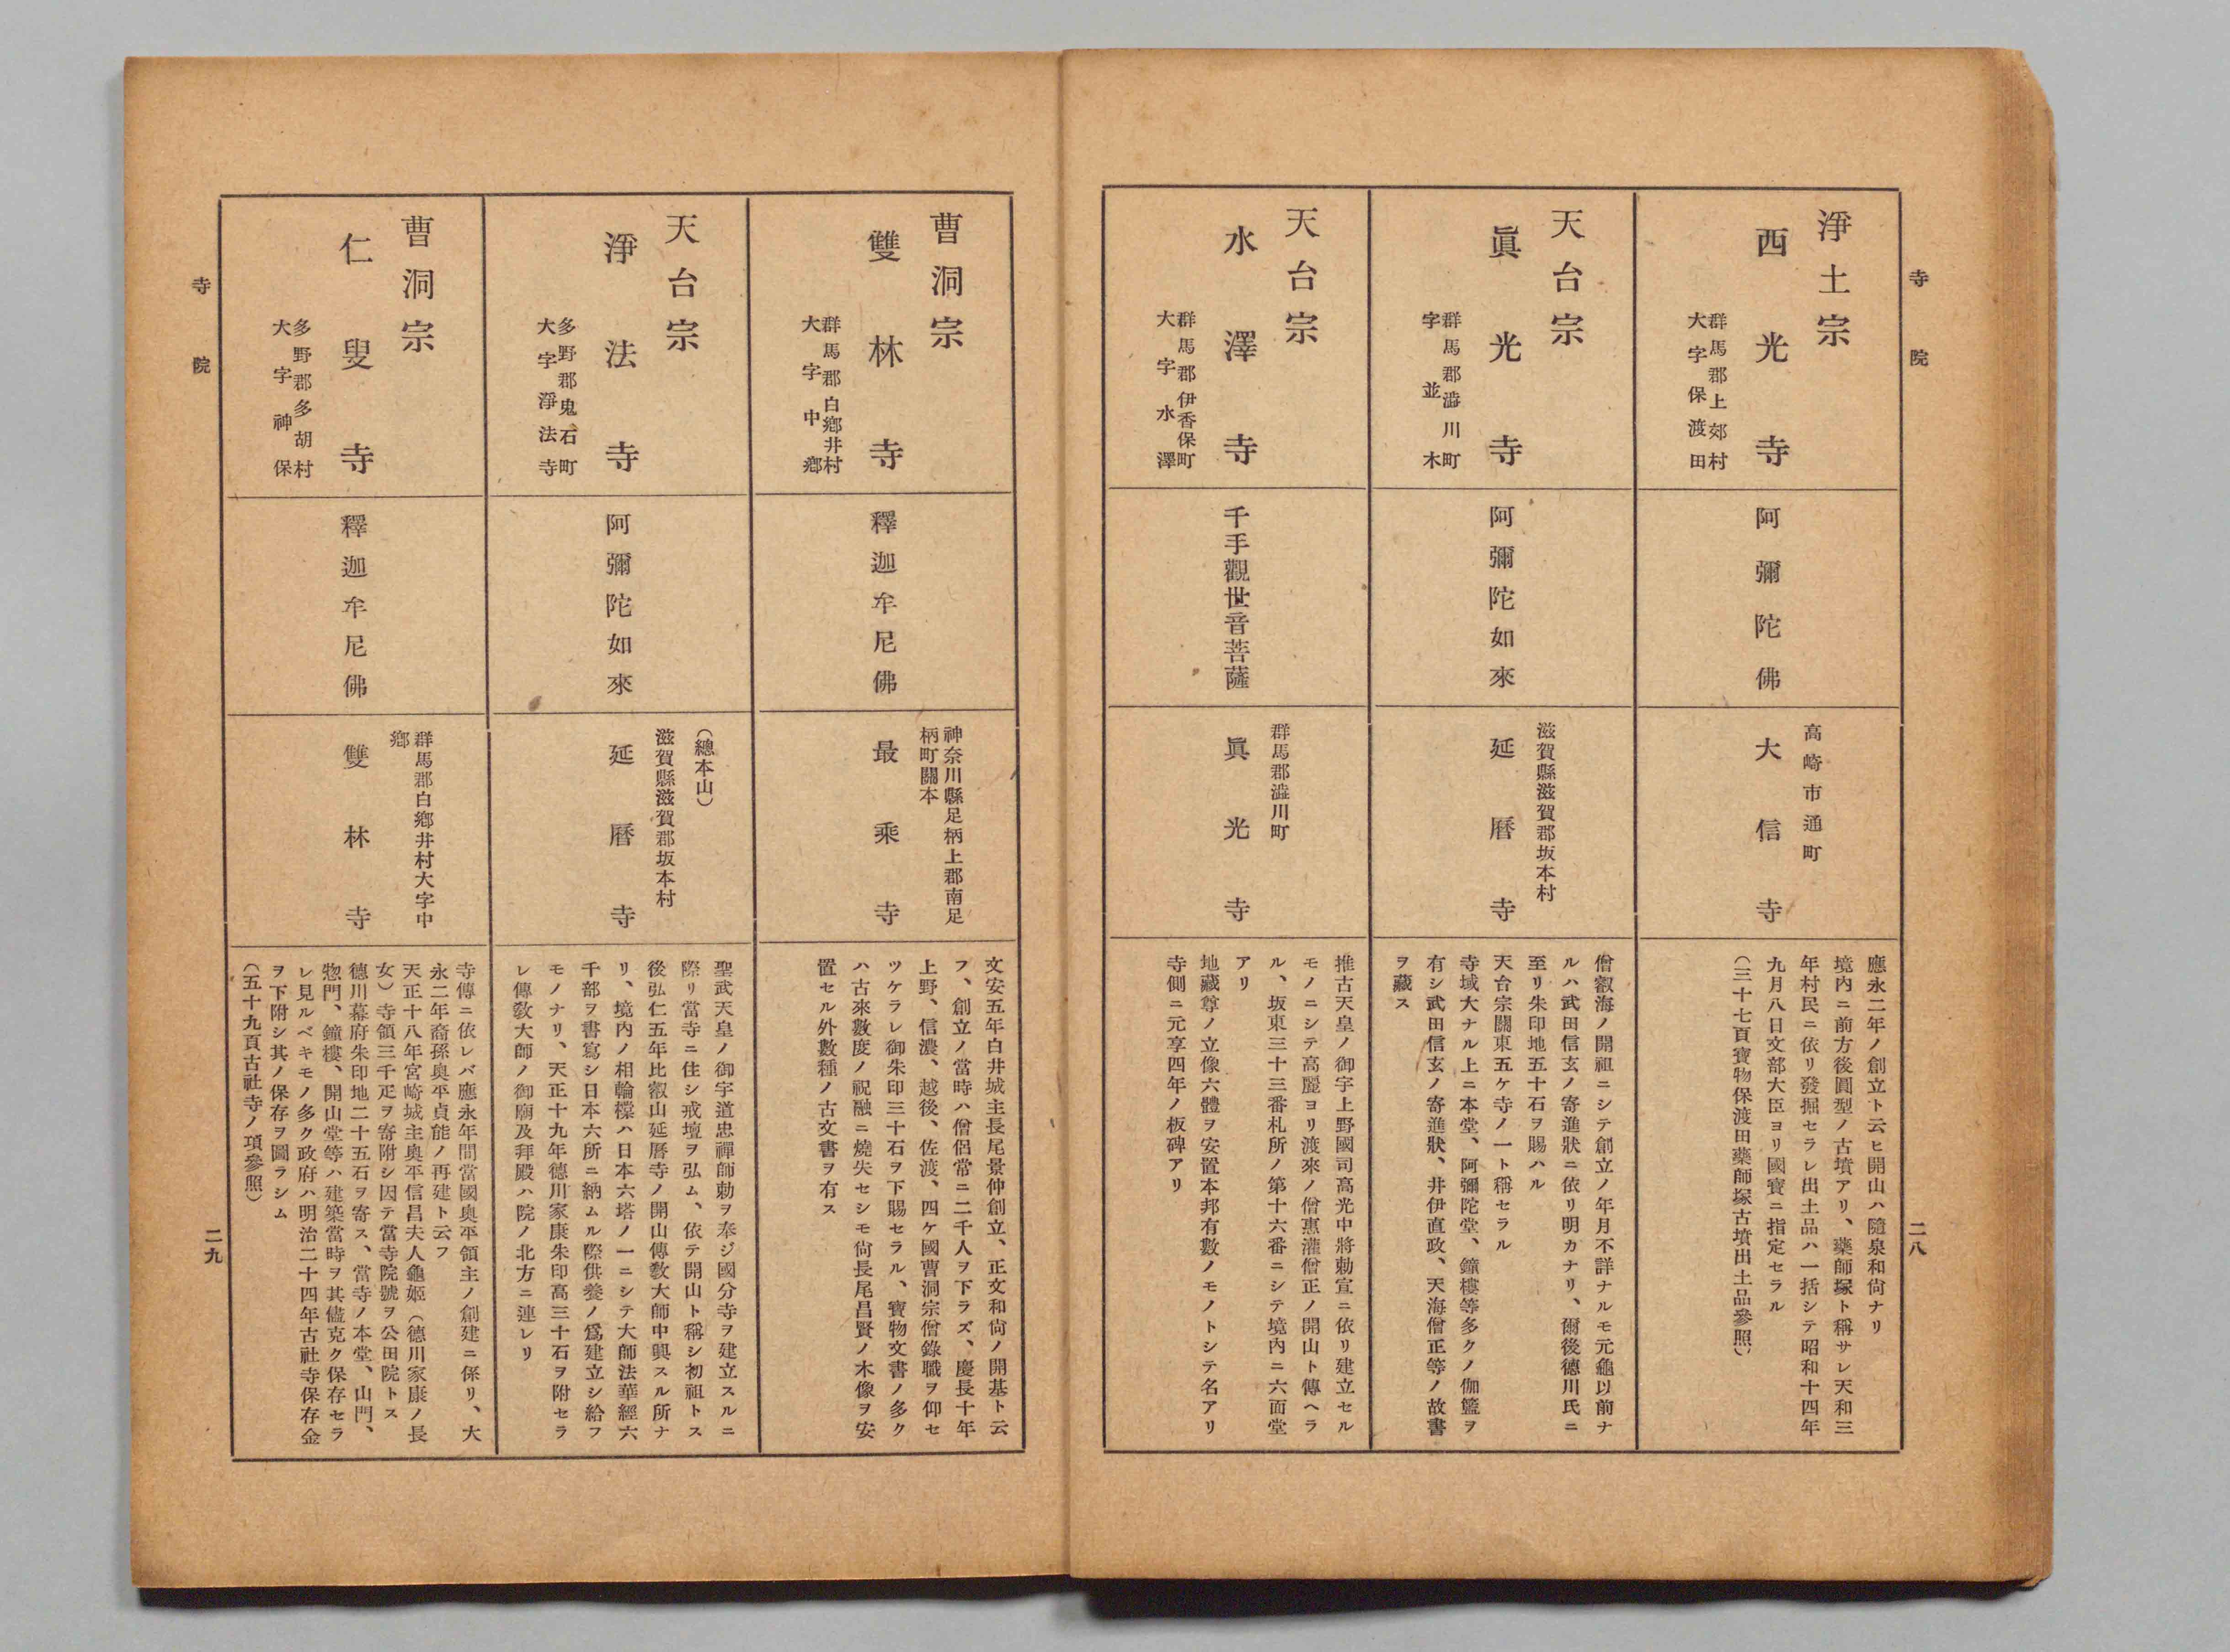 寺院
淨土宗
西光寺
群馬郡上郊村
大字保渡田
阿彌陀佛
高崎市通町
大信寺
應永二年ノ創立ト云ヒ開山ハ隨泉和尙ナリ
境內ニ前方後圓型ノ古墳アリ、藥師塚ト稱サレ天和三
年村民ニ依リ發掘セラレ出土品ハ一括シテ昭和十四年
九月八日文部大臣ヨリ國寶ニ指定セラル
（三十七頁寶物保渡田藥師塚古墳出土品參照）
天台宗
眞光寺
群馬郡澁川町
字並木
阿彌陀如來
滋賀縣滋賀郡坂本村
延曆寺
僧叡海ノ開祖ニシテ創立ノ年月不詳ナルモ元龜以前ナ
ルハ武田信玄ノ寄進狀ニ依リ明カナリ、爾後德川氏ニ
至リ朱印地五十石ヲ賜ハル
天台宗關東五ケ寺ノ一ト稱セラル
寺域大ナル上ニ本堂、阿彌陀堂、鐘樓等多クノ伽籃ヲ
有シ武田信玄ノ寄進狀、井伊直政、天海僧正等ノ故書
ヲ藏ス
天台宗
水澤寺
群馬郡伊香保町
大字水澤
千手觀世音菩薩
群馬郡澁川町
眞光寺
推古天皇ノ御宇上野國司高光中將勅宣ニ依リ建立セル
モノニシテ高麗ヨリ渡來ノ僧惠灌僧正ノ開山ト傳ヘラ
ル、坂東三十三番札所ノ第十六番ニシテ境內ニ六面堂
アリ
地藏尊ノ立像六體ヲ安置本邦有數ノモノトシテ名アリ
寺側ニ元享四年ノ板碑アリ
二八
曹洞宗
雙林寺
群馬郡白鄕井村
大字中鄕
釋迦牟尼佛
神奈川縣足柄上郡南足
柄町關本
最乘寺
文安五年白井城主長尾景仲創立、正文和尙ノ開基ト云
フ、創立ノ當時ハ僧侶常ニ二千人ヲ下ラズ、慶長十年
上野、信濃、越後、佐渡、四ケ國曹洞宗僧錄職ヲ仰セ
ツケラレ御朱印三十石ヲ下賜セラル、寶物文書ノ多ク
ハ古來數度ノ祝融ニ燒失セシモ尙長尾昌賢ノ木像ヲ安
置セル外數種ノ古文書ヲ有ス
天台宗
淨法寺
多野郡鬼石町
大字淨法寺
阿彌陀如來
（總本山）
滋賀縣滋賀郡坂本村
延曆寺
聖武天皇ノ御宇道忠禪師勅ヲ奉ジ國分寺ヲ建立スルニ
際リ當寺ニ住シ戒壇ヲ弘ム、依テ開山ト稱シ初祖トス
後弘仁五年比叡山延曆寺ノ開山傳敎大師中興スル所ナ
リ、境內ノ相輪橖ハ日本六塔ノ一ニシテ大師法華經六
千部ヲ書寫シ日本六所ニ納ムル際供養ノ爲建立シ給フ
モノナリ、天正十九年德川家康朱印高三十石ヲ附セラ
レ傳敎大師ノ御廟及拜殿ハ院ノ北方ニ連レリ
曹洞宗
仁叟寺
多野郡多胡村
大字神保
釋迦牟尼佛
群馬郡白鄕井村大字中
鄕
雙林寺
寺傳ニ依レバ應永年間當國奧平領主ノ創建ニ係リ、大
永二年裔孫奧平貞能ノ再建ト云フ
天正十八年宮崎城主奧平信昌夫人龜姬（德川家康ノ長
女）寺領三千疋ヲ寄附シ因テ當寺院號ヲ公田院トス
德川幕府朱印地二十五石ヲ寄ス、當寺ノ本堂、山門、
惣門、鐘樓、開山堂等ハ建築當時ヲ其儘克ク保存セラ
レ見ルベキモノ多ク政府ハ明治二十四年古社寺保存金
ヲ下附シ其ノ保存ヲ圖ラシム
（五十九頁古社寺ノ項參照）
寺院
二九